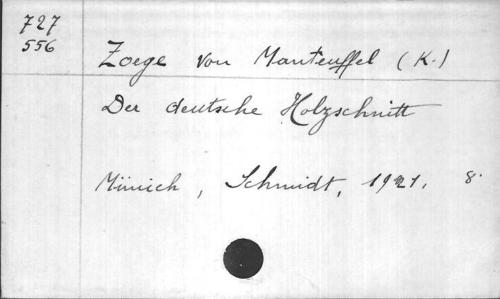 727
556
Zoege von Manteuffel (K.)
Der deutsche Holzschnitt
Münich, Schmidt, 1921. 8.